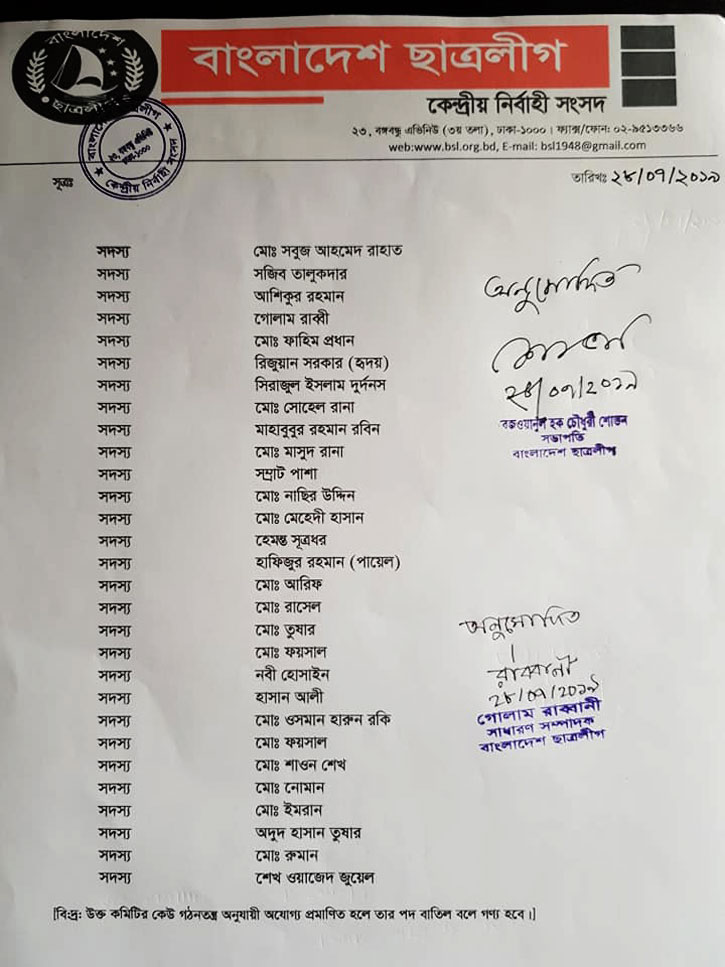 বাংলাদেশ
ছাত্রলীগ
বাংলাদেশ ছাত্রলীগ
কেন্দ্রীয় নির্বাহী সংসদ
২৩, বঙ্গবন্ধু এভিনিউ (৩য় তলা), ঢাকা-১০০০। ফ্যাক্স/ফোন: ০২-৯৫১৩৩৬৬
web:www.bsl.org.bd, E-mail: bsl1948@gmail.com
বাংলাদেশ ছাত্রলীগ
কেন্দ্রীয় নির্বাহী সংসদ
সূত্রঃ
তারিখঃ ২৮/০৭/২০১৯
সদস্য মোঃ সবুজ আহমেদ রাহাত
সদস্য সজিব তালুকদার
সদস্য আশিকুর রহমান
সদস্য গোলাম রাব্বী
সদস্য মোঃ ফাহিম প্রধান
সদস্য রিজুয়ান সরকার (হৃদয়)
সদস্য সিরাজুল ইসলাম দুর্দনস
সদস্য মোঃ সোহেল রানা
সদস্য মাহাবুবুর রহমান রবিন
সদস্য মোঃ মাসুদ রানা
সদস্য সম্রাট পাশা
সদস্য মোঃ নাছির উদ্দিন
সদস্য মোঃ মেহেদী হাসান
সদস্য হেমন্ত সূত্রধর
সদস্য হাফিজুর রহমান (পায়েল)
সদস্য মোঃ আরিফ
সদস্য মোঃ রাসেল
সদস্য মোঃ তুষার
সদস্য মোঃ ফয়সাল
সদস্য নবী হোসাইন
সদস্য হাসান আলী
সদস্য মোঃ ওসমান হারুন রকি
সদস্য মোঃ ফয়সাল
সদস্য মোঃ শাওন শেখ
সদস্য মোঃ নোমান
সদস্য মোঃ ইমরান
সদস্য অদুদ হাসান তুষার
সদস্য মোঃ রুমান
সদস্য শেখ ওয়াজেদ জুয়েল
অনুমোদিত
২৮/০৭/২০১৯
রেজওয়ানুল হক চৌধুরী শোভন
সভাপতি
বাংলাদেশ ছাত্রলীগ
অনুমোদিত
রাব্বানী
২৮/০৭/২০১৯
গোলাম রাব্বানী
সাধারণ সম্পাদক
বাংলাদেশ ছাত্রলীগ
[বি:দ্র: উক্ত কমিটির কেউ গঠনতন্ত্র অনুযায়ী অযোগ্য প্রমাণিত হলে তার পদ বাতিল বলে গণ্য হবে।]